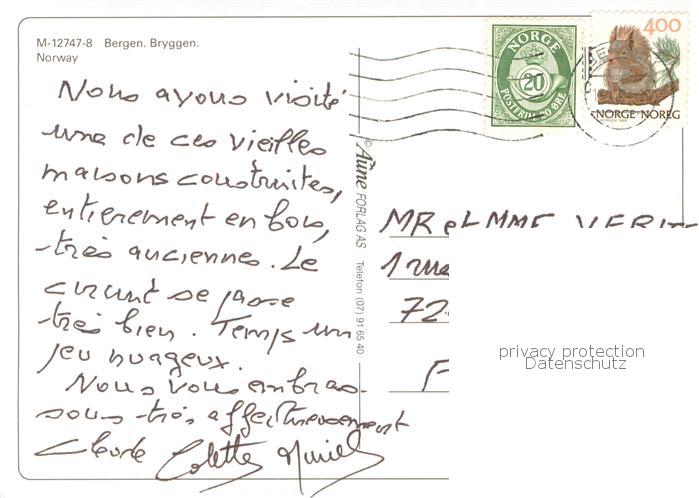 M-12747-8 Bergen. Bryggen.
Norway
Nous avons visité
une de ces vieilles
maisons construites,
entièrement en bois,
très anciennes. Le
circuit se passe
très bien. Temps un
peu nuageux.
Nous vous embras-
sons très affectueusement
Claude Colette Muriel
© Aune FORLAG AS Telefon (07) 91 65 40
NORGE
20
POSTFRIM. 20 ØRE
400
NORGE NOREG
MR et MME VERIT
1 rue
72
F
privacy protection
Datenschutz